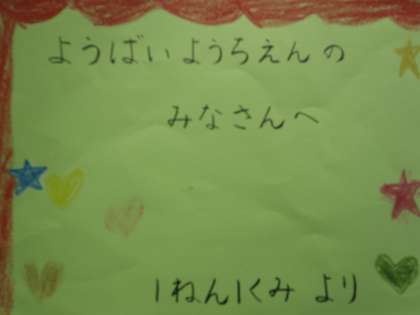 ようばいようちえんの
みなさんへ
1ねん1くみ より